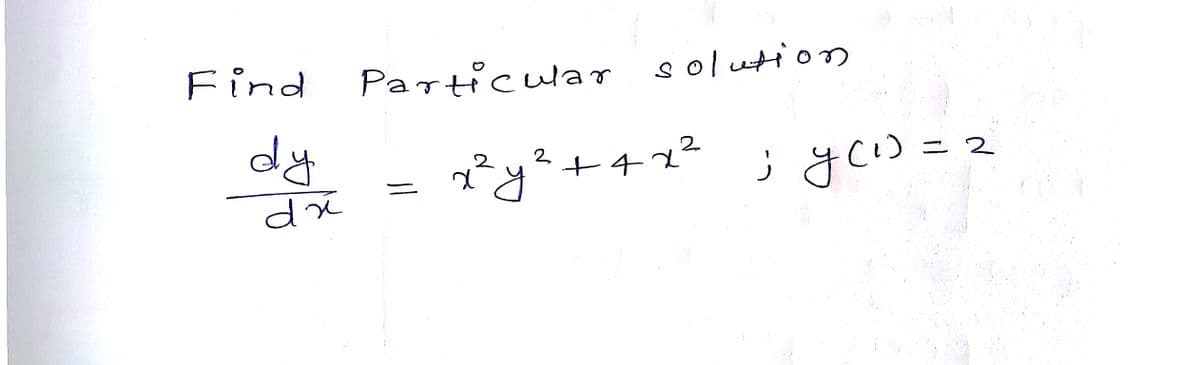 Find Particular solution
dy/dx = x²y² + 4x² ; y(1) = 2